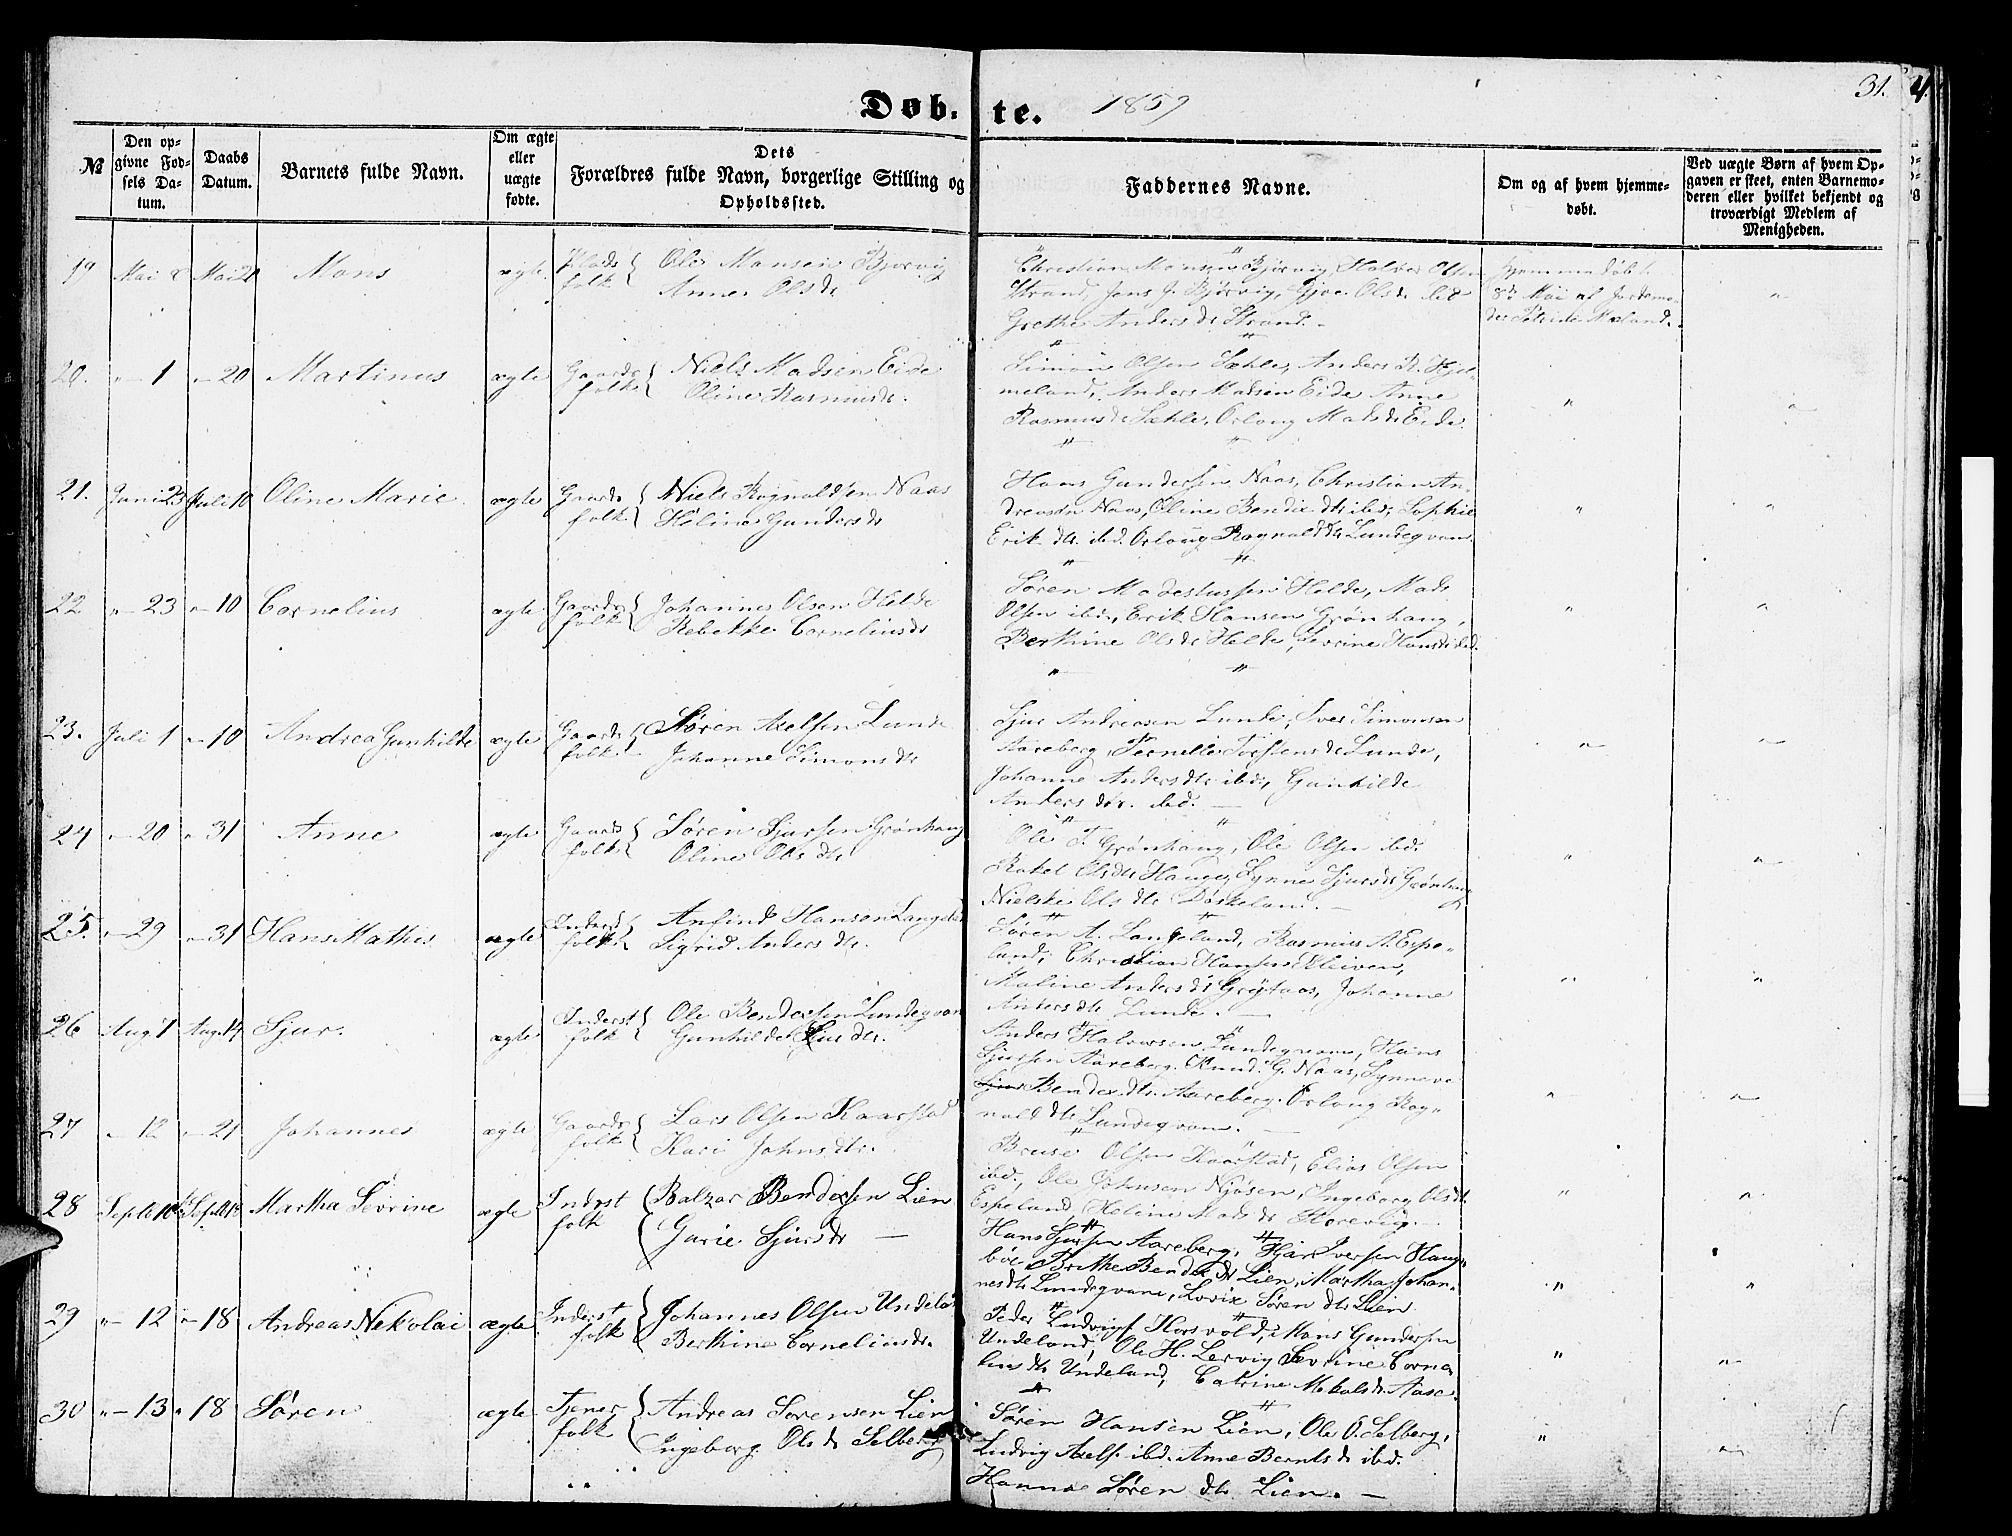 31.
Døbte. 1859
№
Den opgivne Fødsels Datum.
Daabs Datum.
Barnets fulde Navn.
Om ægte eller uægte fødte.
Dets Forældres fulde Navn, borgerlige Stilling og Opholdssted.
Faddernes Navne.
Om og af hvem hjemmedøbt.
Ved uægte Børn af hvem Opgaven er skeet, enten Barnemoderen eller hvilket bekjendt og troværdigt Medlem af Menigheden.
19 Mai 8 Mai 21 Mons ægte Olas Monsen Bjørvig
folk Anne Olsdr
Christian Monsen Bjørvig, Halvor Olsen
Strand, Jens J. Bjørvig, Olsdr ibd
Grethe Andersdr Strand.
Hjemmedøbt
8de Mai af Jordemo-
der
20. " 1 " 20 Martinus ægte Gaards Niels Madsen Eide
folk Oline Rasmusdr.
Simon Olsen Sæhle, Anders R. Hjel-
meland, Anders Madsen Eide Anne
Rasmusdr Sæhle, Orloug Madsdr Eide.
21. Juni 23 Juli 10 Oline Marie ægte Gaards Niels Rognaldsen Naas
folk Heline Gundersdr
Hans Gundersen Naas, Christian An-
dreasen Naas, Oline Bendixdtr ibd, Sophie
Erikdtr. ibd. Orloug Rognalddtr Lundeqvam
22 " 23 " 10 Cornelius ægte Gaards Johannes Olsen Helde
folk Rebekke Corneliusdr
Søren Modestussen Helde, Mads
Olsen ibd, Erik Hansen Grønhaug,
Berthine Olsdr Helde, Sevrine Hansdr ibd.
23. Juli 1 " 10 Andrea Gunhilde ægte Gaards Søren Axelsen Lunde
folk Johanne Simonsdtr
Sjur Andreasen Lunde, Iver Simonsen
Aareberg, Pernelle Torstensdr Lunde,
Johanne Andersdtr ibd, Gunhilde
Andersdtr. ibd.
24 " 20 " 31 Anne ægte Gaards Søren Sjursen Grønhaug
folk Oline Olsdtr
Ole T. Grønhaug, Ole Olsen ibd.
Rakel Olsdtr Hauge, Synne Sjursdr Grønhaug
Nielske Olsdtr Døskeland.
25. " 29 " 31 Hans Mathis ægte Inderst Anfind Hansen Langeland
folk Sigrid Andersdtr.
Søren A. Langeland, Rasmus A. Espe-
land, Christian Hansen Kleiven,
Maline Andersdr Grøtaas, Johanne
Andersdtr Lunde.
26 Aug 7 Aug. 14 Sjur. ægte Inderst Ole Bendixsen Lundeqvam
folk Gunhilde Sjursdtr.
Anders Halvorsen Lundeqvam, Hans
Sjursen Aareberg. Knud G. Naas, Synneve
Bendexdtr Aareberg. Orloug Rog-
nalddtr Lundeqvam.
27 " 12 " 21 Johannes ægte Gaards Lars Olsen Kaarstad
folk Kari Johnsdtr.
Bruse Olsen Kaarstad, Elias Olsen
ibd., Ole Johnsen Njøsen, Ingeborg Olsdtr
Espeland Heline Madsdr
28 Septb 10 Septb 18 Martha Sevrine ægte Inderst Balzar Bendixsen Lien
folk Gurie Sjursdr
Hans Sjursen Aareberg, Iversen Haug-
bøe Brithe Bendixdtr Lien, Martha Johan-
nesdtr Lundeqvam, Sørendtr Lien
29 " 12 " 18 Andreas Nikolai ægte Inderst Johannes Olsen Undeland
folk Berthine Corneliusdr.
Peder Ludvigs Horsvold, Mons Gundersen
Undeland, Ole H. Lervig Sevrine Corne-
liusdtr Undeland, Catrine Mikalsdr Aase.
30 " 13 " 18 Søren ægte Tjener Andreas Sørensen Lien
folk Ingeborg Olsdr Selberg
Søren Hansen Lien, Ole O. Selberg,
Ludvig Axels. ibd. Anne Berntsdr ibd.
Hanna Sørendtr Lien.